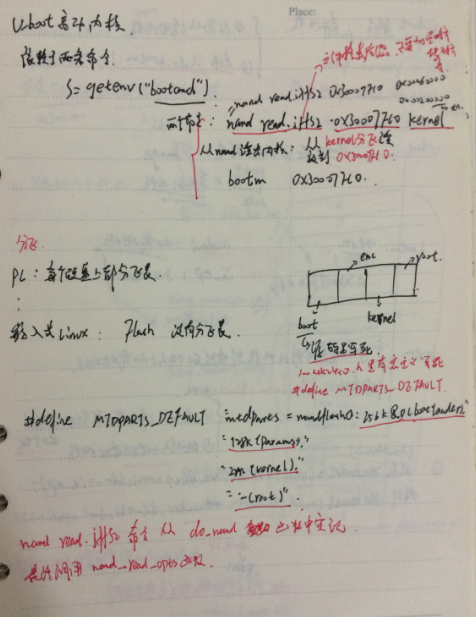 Place:
Uboot 启动内核
依赖于两条命令
S = getenv("bootcmd")
nand read.jffs2 0x30007FC0 0x00060000
0x00200000
两个命令: nand read.jffs2 0x30007FC0 kernel
从nand读出内核: 从kernel分区读
放到0x30007FC0
bootm 0x30007FC0.
分区
PC: 每个硬盘上部分区表
env root
嵌入式Linux: Flash 没有分区表.
boot kernel
源码里写死
#define MTDPARTS_DEFAULT
#define MTDPARTS_DEFAULT "mtdparts=nandflash0:256k@0(bootloader),"
"128k(params),"
"2m(kernel),"
"-(root)".
nand read.jffs2 命令 从 do_nand 函数中实现
最终调用 nand_read_opts 函数.